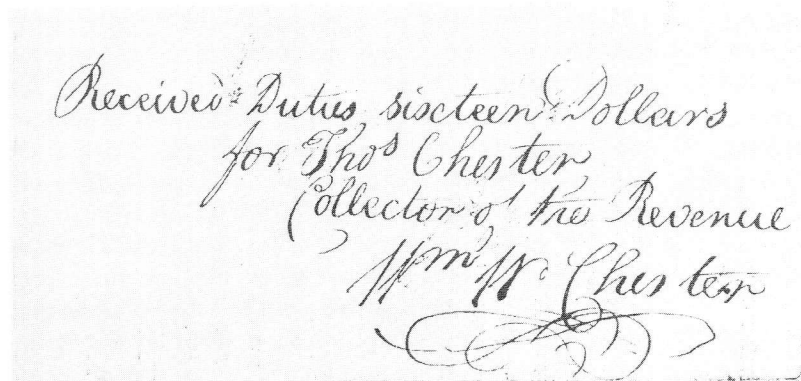 Received Duties sixteen Dollars
for Thos Chester
Collector of the Revenue
Wm W. Chester